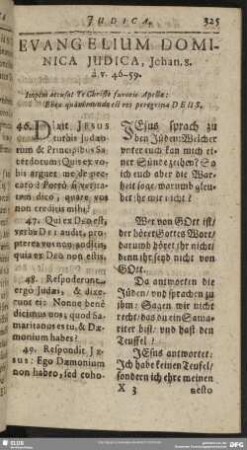 JUDICA. 325
EVANGELIUM DOMI-
NICA JUDICA, Johan. 8.
à v. 46-59.
Impius accusat Te Christe furoris Apella:
46. Dixit JESUS
turbis Judæo-
rum & Principibus Sa-
cerdotum: Quis ex vo-
bis arguet me de pec-
cato? Porrò si verita-
tem dico, quare vos
non creditis mihi?
47. Qui ex Deo est,
verba Dei audit, pro-
pterea vos non auditis,
quia ex Deo non estis.
48. Responderunt
ergò Judæi, & dixe-
runt ei: Nonne benè
dicimus nos, quod Sa-
maritanus es tu, & Dæ-
monium habes?
49. Respondit JE-
sus: Ego Dæmonium
non habeo, sed hono-
JEsus sprach zu
den Jüden: Welcher
unter euch kan mich ei-
ner Sünde zeihen? Sa
ich euch aber die War-
heit sage, warumb gleu-
bet ihr mir nicht?
Wer von GOtt ist/
der höret Gottes Wort/
darumb höret ihr nicht/
denn ihr seyd nicht von
GOtt.
Da antworten die
Jüden/ und sprachen zu
ihm: Sagen wir nicht
recht/ das du ein Sama-
riter bist/ und hast den
Teuffel?
JEsus antwortet:
Ich habe keinen Teufel/
sondern ich ehre meinen
X 3
SLUB